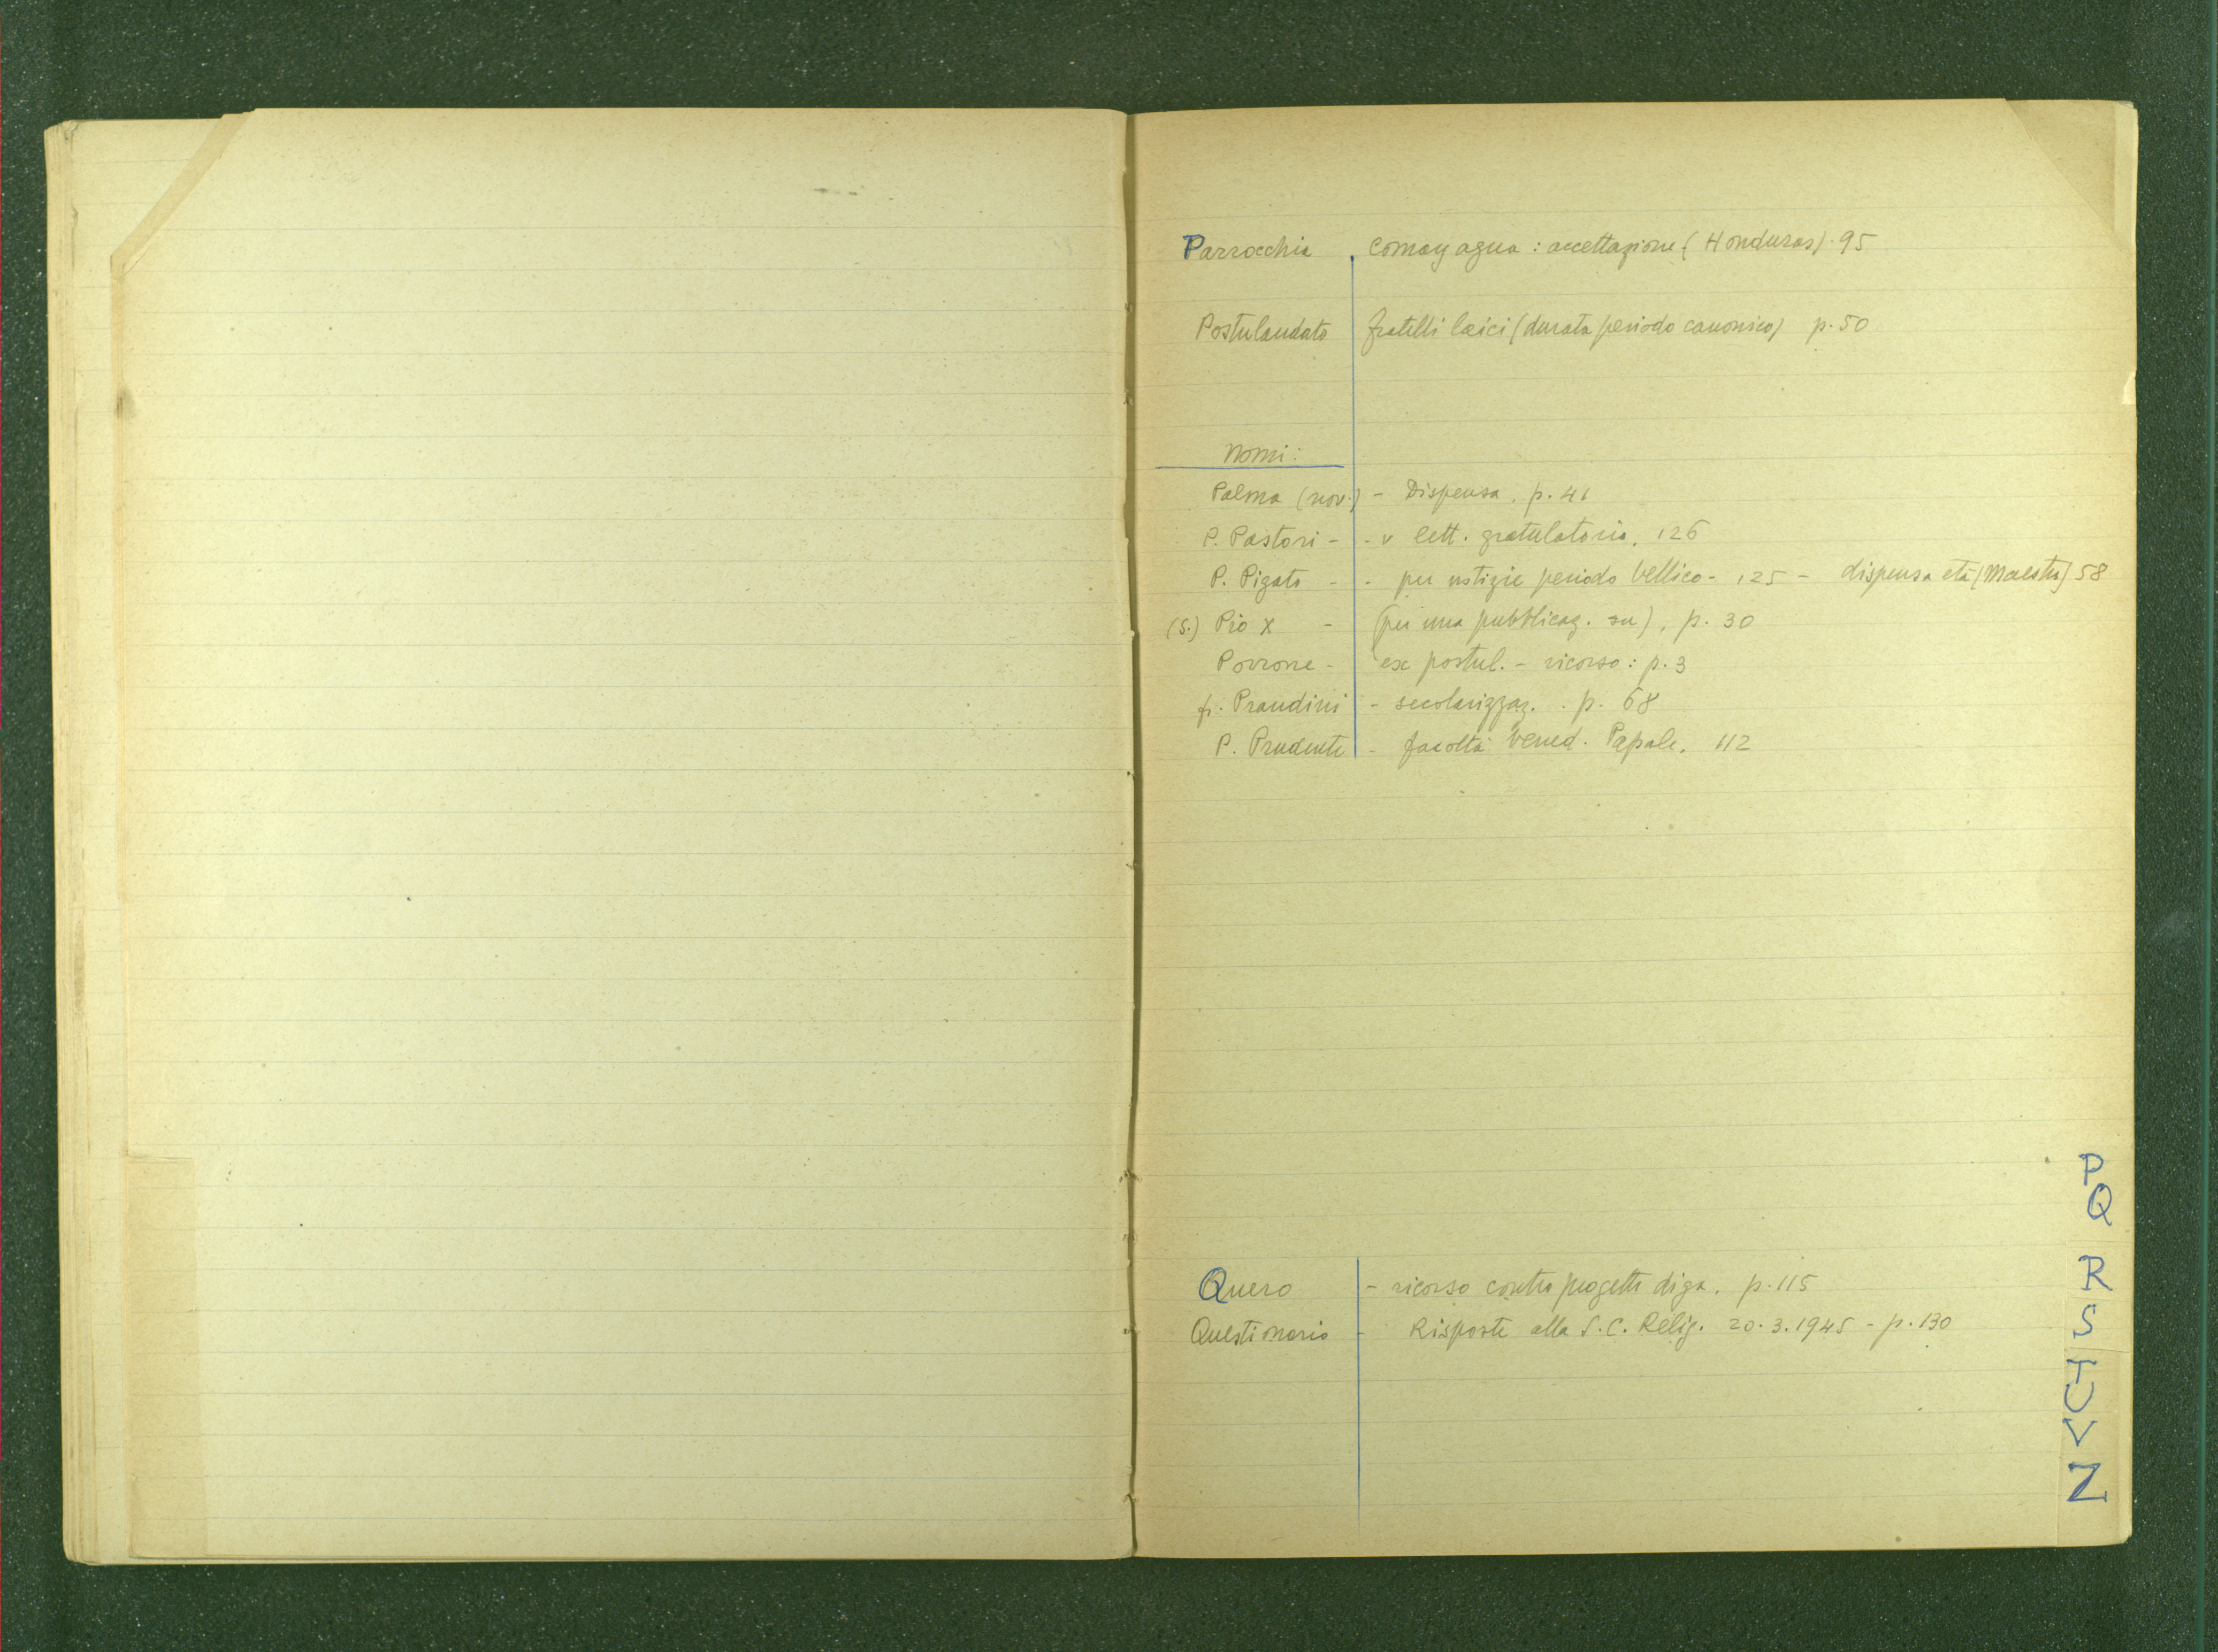 Parrocchia Comayagua : accettazione (Honduras). 95
Postulandato fratelli laici (durata periodo canonico) p. 50
Nomi:
Palma (nov.) - Dispensa. p. 41
P. Pastori - - v lett. gratulatoria. 126
P. Pigato - - per notizie periodo bellico - 125 - dispensa età (Maestro) 58
(S.) Pio X - (per una pubblicaz. su), p. 30
Porrone - ex postul. - ricorso : p. 3
fr. Prandini - secolarizzaz. . p. 68
P. Prudente - facoltà Bened. Papale. 112
Quero - ricorso contro progetto diga. p. 115
Questionario - Risposte alla S. C. Relig. 20.3.1945 - p. 130
P
Q
R
S
T
U
V
Z